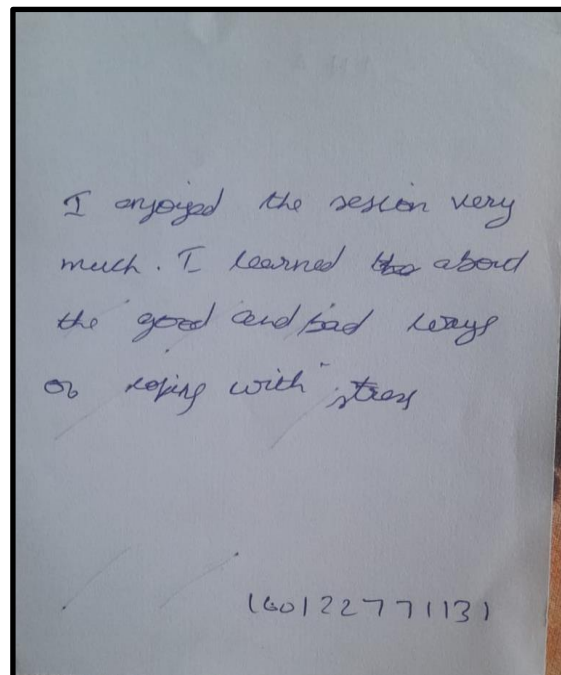 I enjoyed the session very
much. I learned about
the good and bad ways
of coping with stress
160122771131